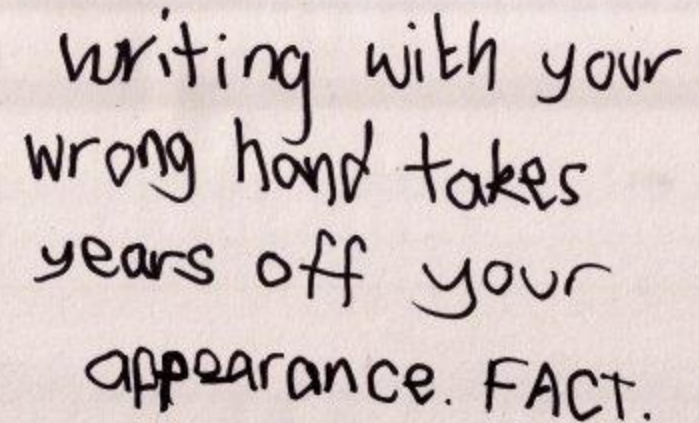 writing with your
wrong hand takes
years off your
appearance. FACT.